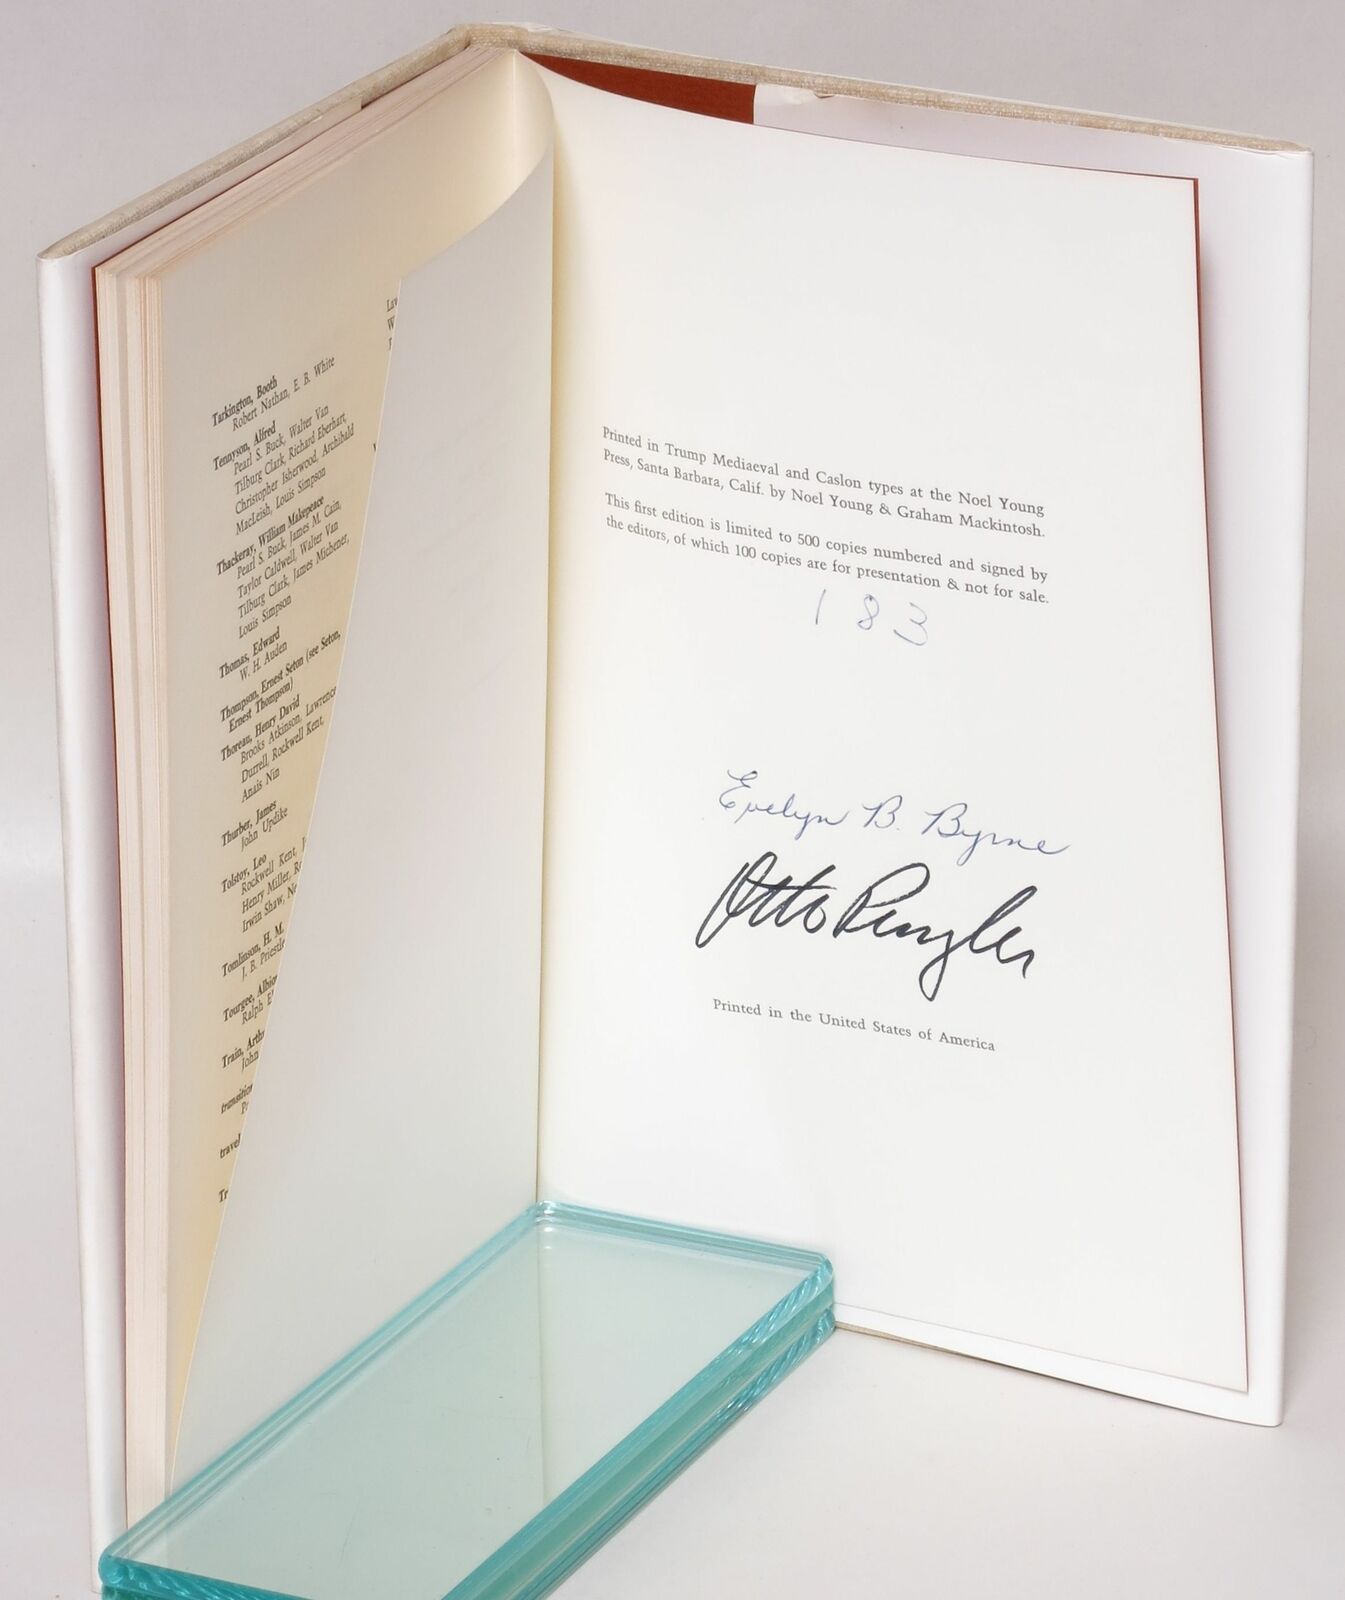 La
W
Tarkington, Booth
Robert Nathan, E. B. White
Tennyson, Alfred
Pearl S. Buck, Walter Van
Tilburg Clark, Richard Eberhart,
Christopher Isherwood, Archibald
MacLeish, Louis Simpson
Thackeray, William Makepeace
Pearl S. Buck, James M. Cain,
Taylor Caldwell, Walter Van
Tilburg Clark, James Michener,
Louis Simpson
Thomas, Edward
W. H. Auden
Thompson, Ernest Seton (see Seton,
Ernest Thompson)
Thoreau, Henry David
Brooks Atkinson, Lawrence
Durrell, Rockwell Kent,
Anais Nin
Thurber, James
John Updike
Tolstoy, Leo
Rockwell Kent,
Henry Miller,
Irwin Shaw,
Tomlinson, H. M.
J. B. Priestle
Tourgee, Albio
Ralph E
Train, Arth
John
transitio
travel
Tr
Printed in Trump Mediaeval and Caslon types at the Noel Young
Press, Santa Barbara, Calif. by Noel Young & Graham Mackintosh.
This first edition is limited to 500 copies numbered and signed by
the editors, of which 100 copies are for presentation & not for sale.
183
Evelyn B. Byrne
Otto Penzler
Printed in the United States of America